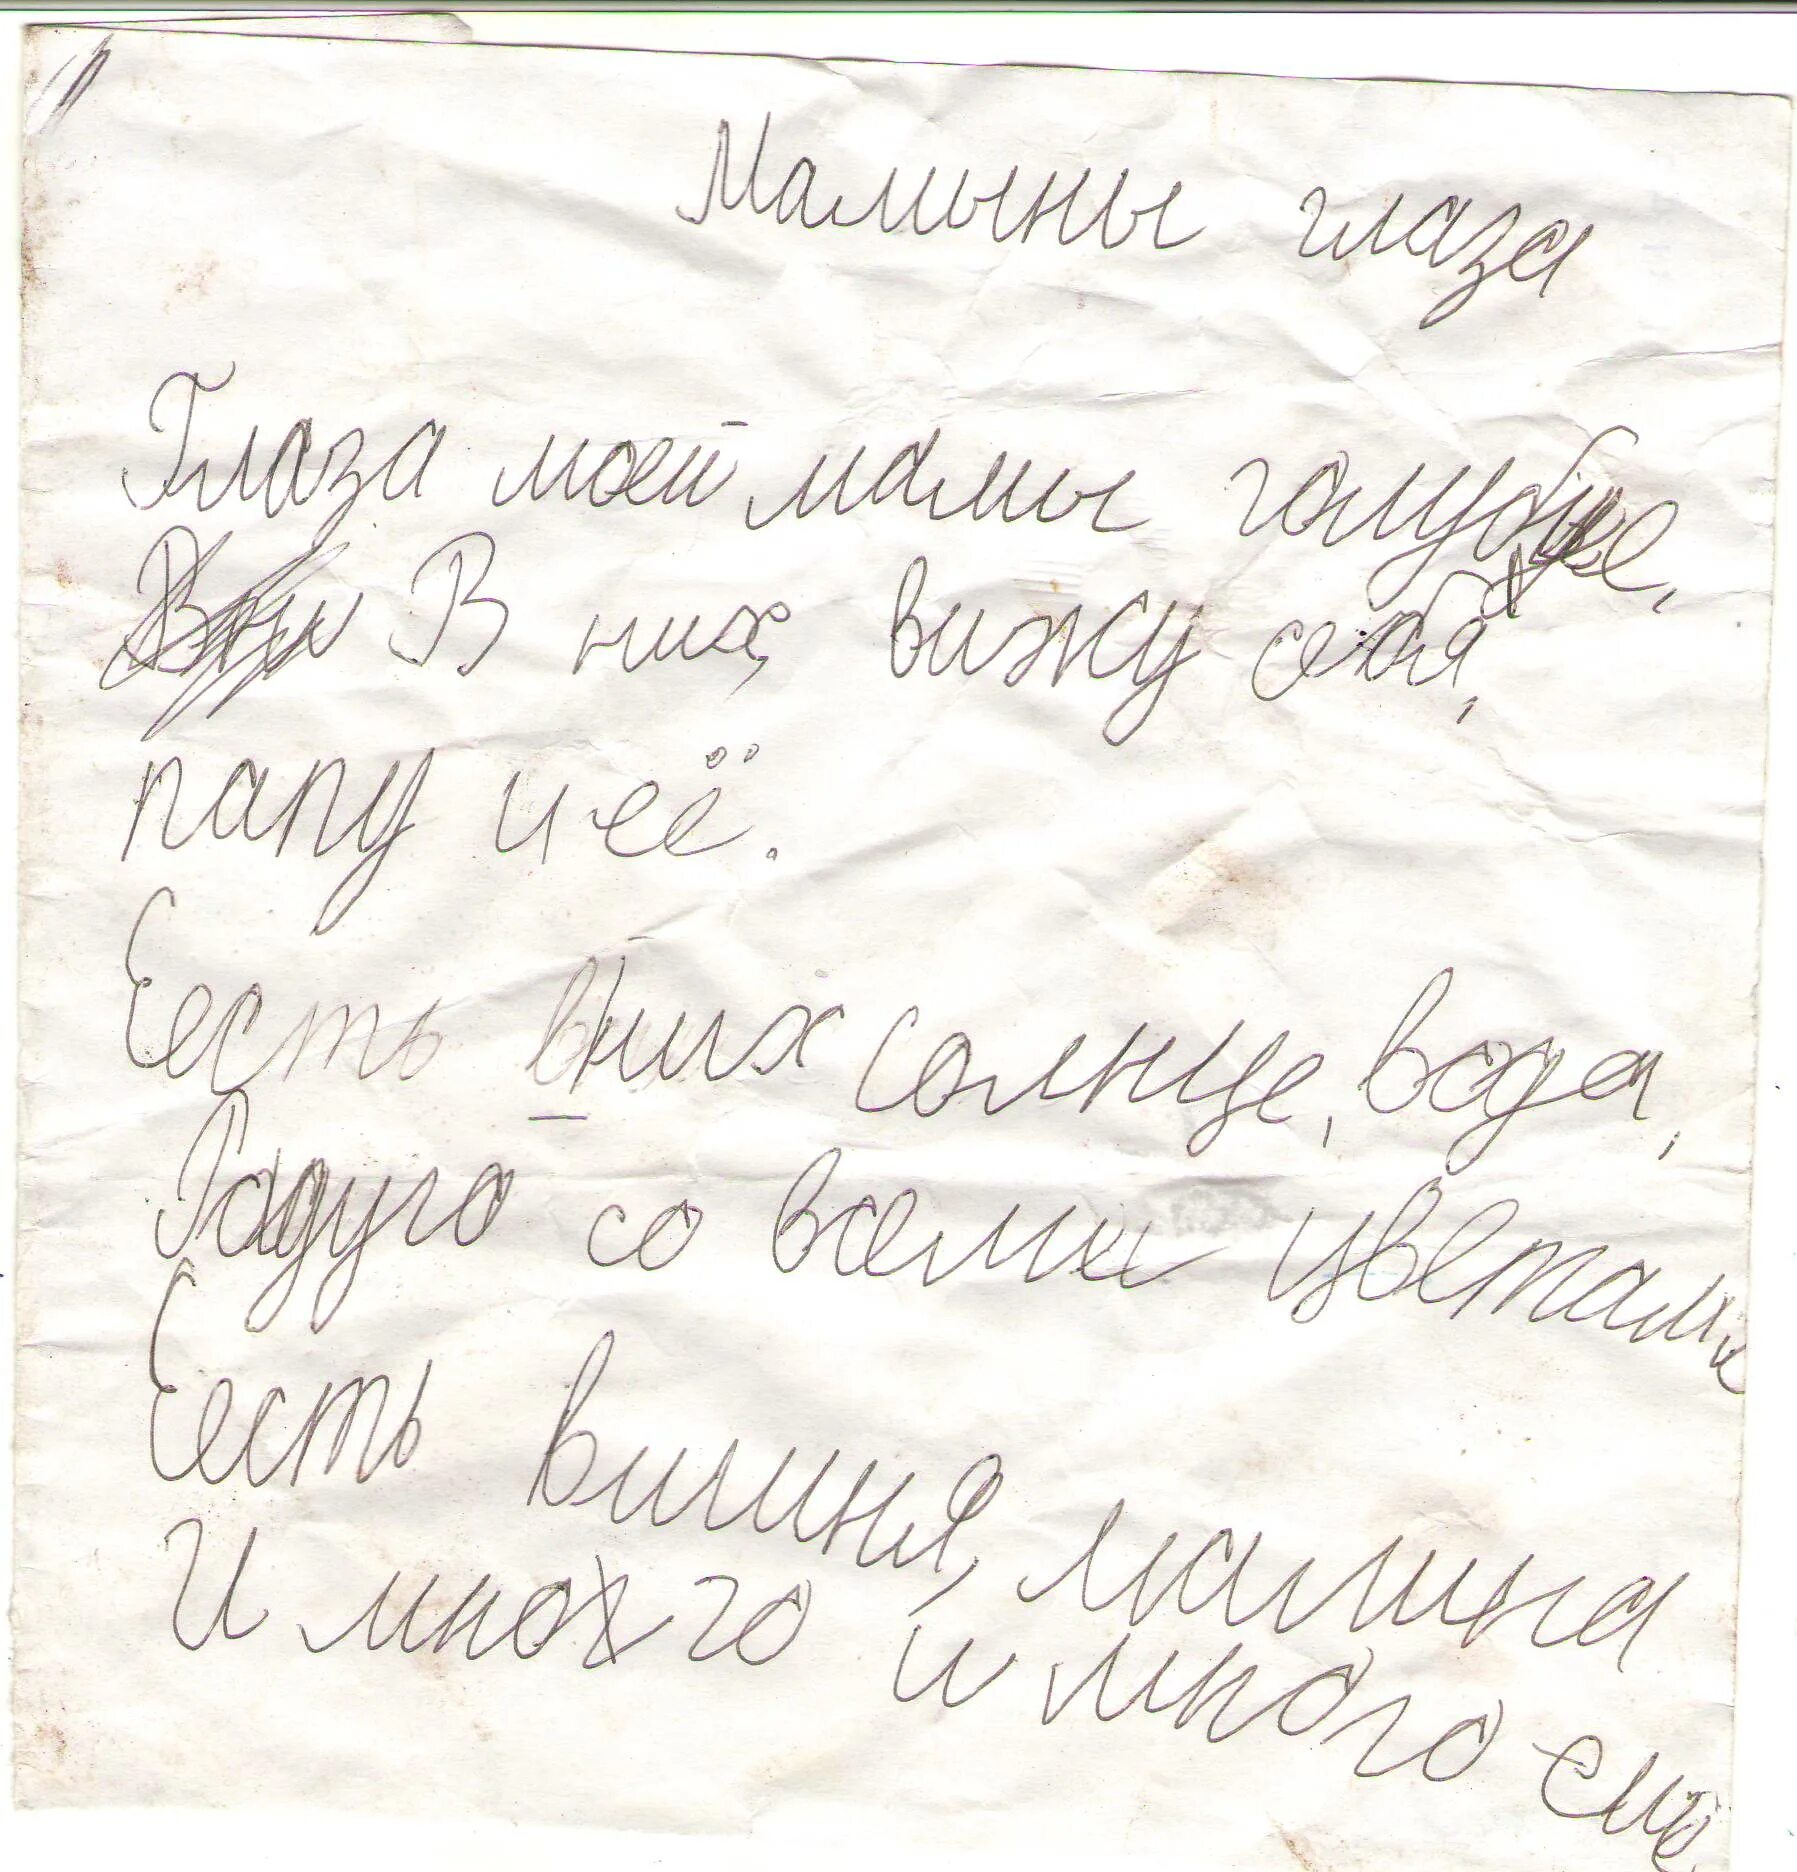 Мамыны глаза
Глаза моей мамы голубые,
В них, вижу себя,
папу и её.
Есть в них солнце, вода,
Радуго со всеми цветами
Есть вишня, малина
И много и много ещё